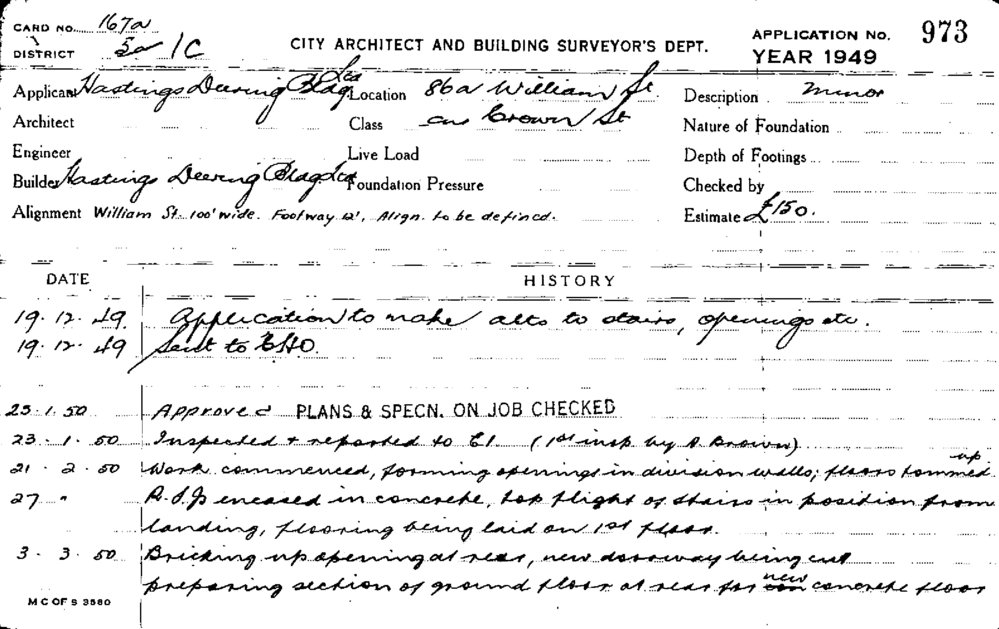 CARD NO. 167a
DISTRICT 5a /C
CITY ARCHITECT AND BUILDING SURVEYOR'S DEPT.
APPLICATION NO. 973
YEAR 1949
Applicant Hastings Deering Bldg Ltd Location 86a William St. Description minor
Architect Class cnr Crown St Nature of Foundation
Engineer Live Load Depth of Footings
Builder Hastings Deering Bldg Ltd Foundation Pressure Checked by
Alignment William St. 100' wide. Footway 12', Align. to be defined. Estimate £150.
DATE HISTORY
19.12.49 Application to make alts to stairs, openings etc.
19.12.49 Sent to EHO.
23.1.50 Approved PLANS & SPECN. ON JOB CHECKED
23.1.50 Inspected + reported to E1 (1st insp by A Brown)
21.2.50 Work commenced, forming openings in division walls; floors tommed up
27 " R.S.Js encased in concrete, top flight of stairs in position from
landing, flooring being laid on 1st floor.
3.3.50 Bricking up opening at rear, new doorway being cut
preparing section of ground floor at rear for new concrete floor
M C OF S 3580